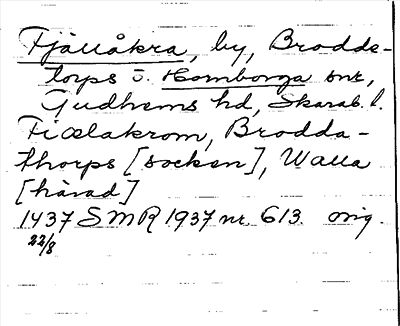 Fjällåkra, by, Brodde-
torps o. Hornborga snr,
Gudhems hd, Skarab. l.
Ficelakrom, Brodda-
thorps [socken], Walla
[härad]
1437 SMR 1937 nr 613 orig.
22/8